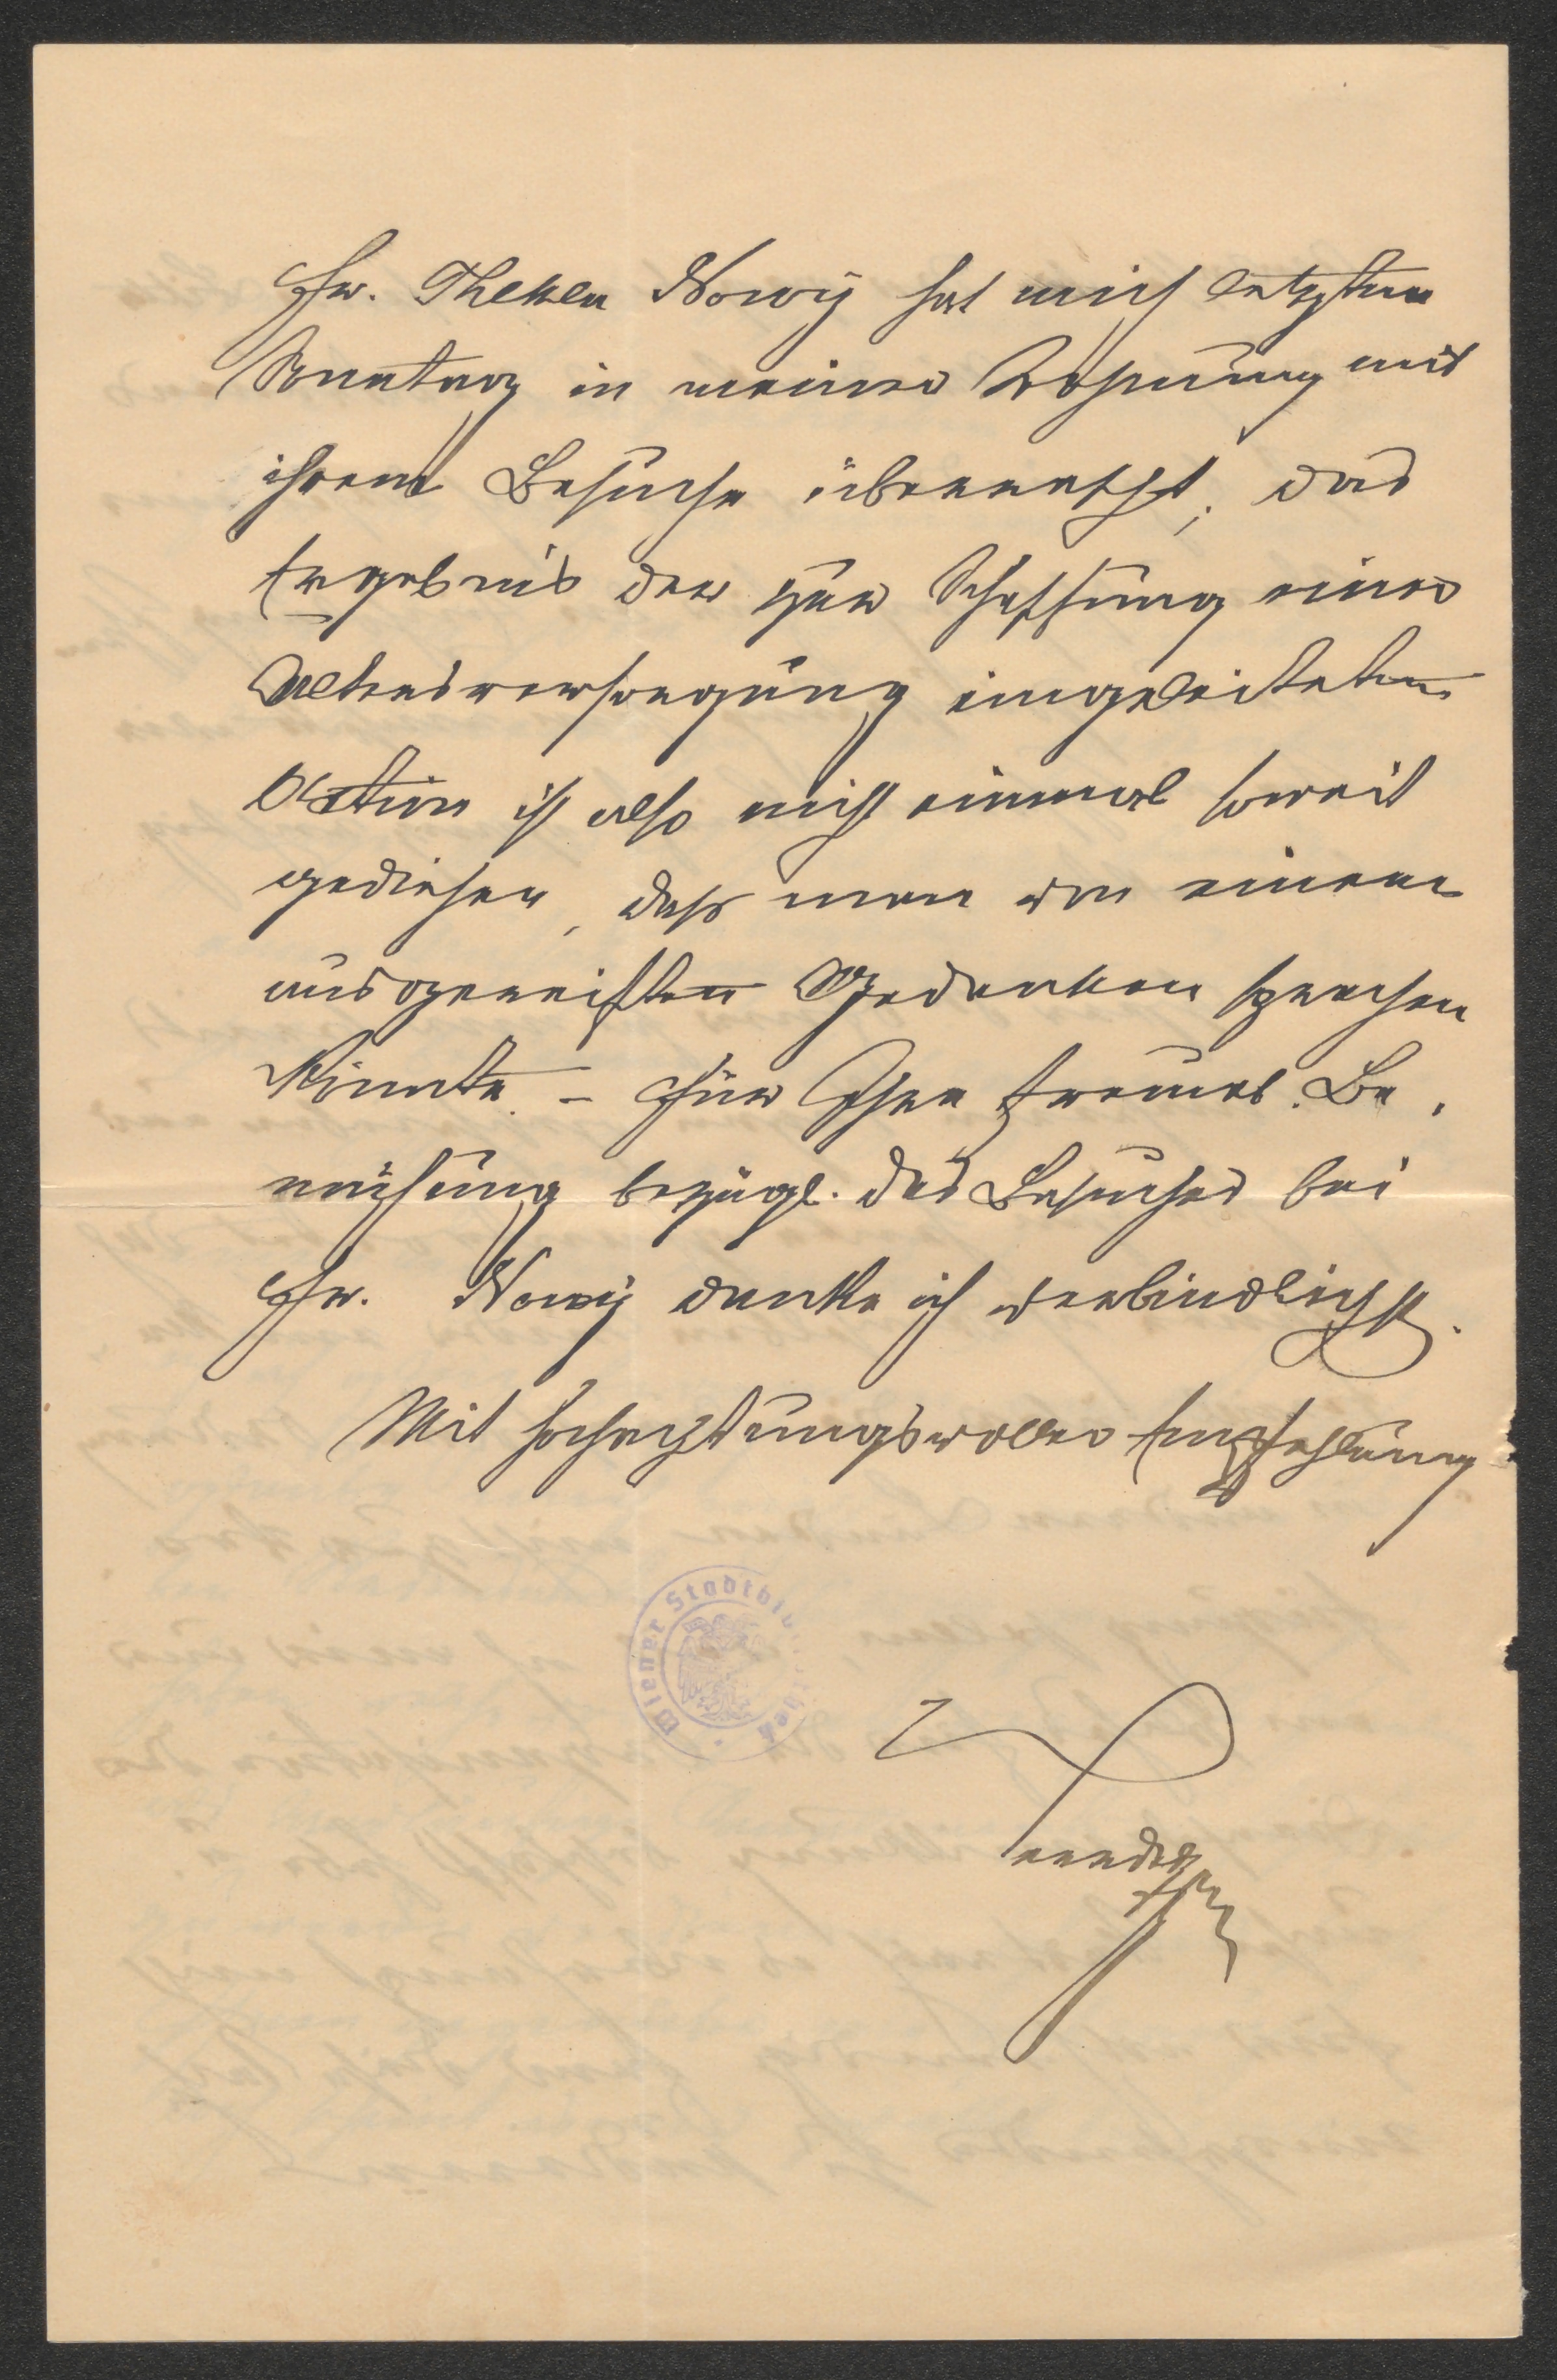 Fr. Thekla Nowý hat mich letzten
Sonntag in meiner Wohnung mit
ihrem Besuche überrascht; das
Ergebnis der zur Schaffung einer
Altersversorgung eingeleiteten
Action ist also nicht einmal soweit
gediehen, daß man von einem
ausgereiften Gedanken sprechen
könnte. – Für Ihre freundl. Be-
mühung bezügl. des Besuches bei
Fr. Nowý danke ich verbindlichst.
Mit hochachtungsvoller Empfehlung
Wiener Stadtbibliothek